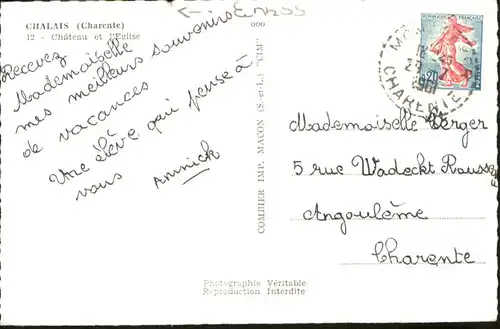 CHALAIS (Charente)
12 - Château et l'Eglise
Recevez
Mademoiselle
mes meilleurs souvenirs
de vacances
Une élève qui pense à
vous Annick
000
COMBIER IMP. MACON (S.-et-L.) "CIM"
REPUBLIQUE FRANÇAISE
0,20
1961
CHARENTE
Mademoiselle Verger
5 rue Wadeckt Rousseau
Angoulême
Charente
Photographie Véritable
Reproduction Interdite